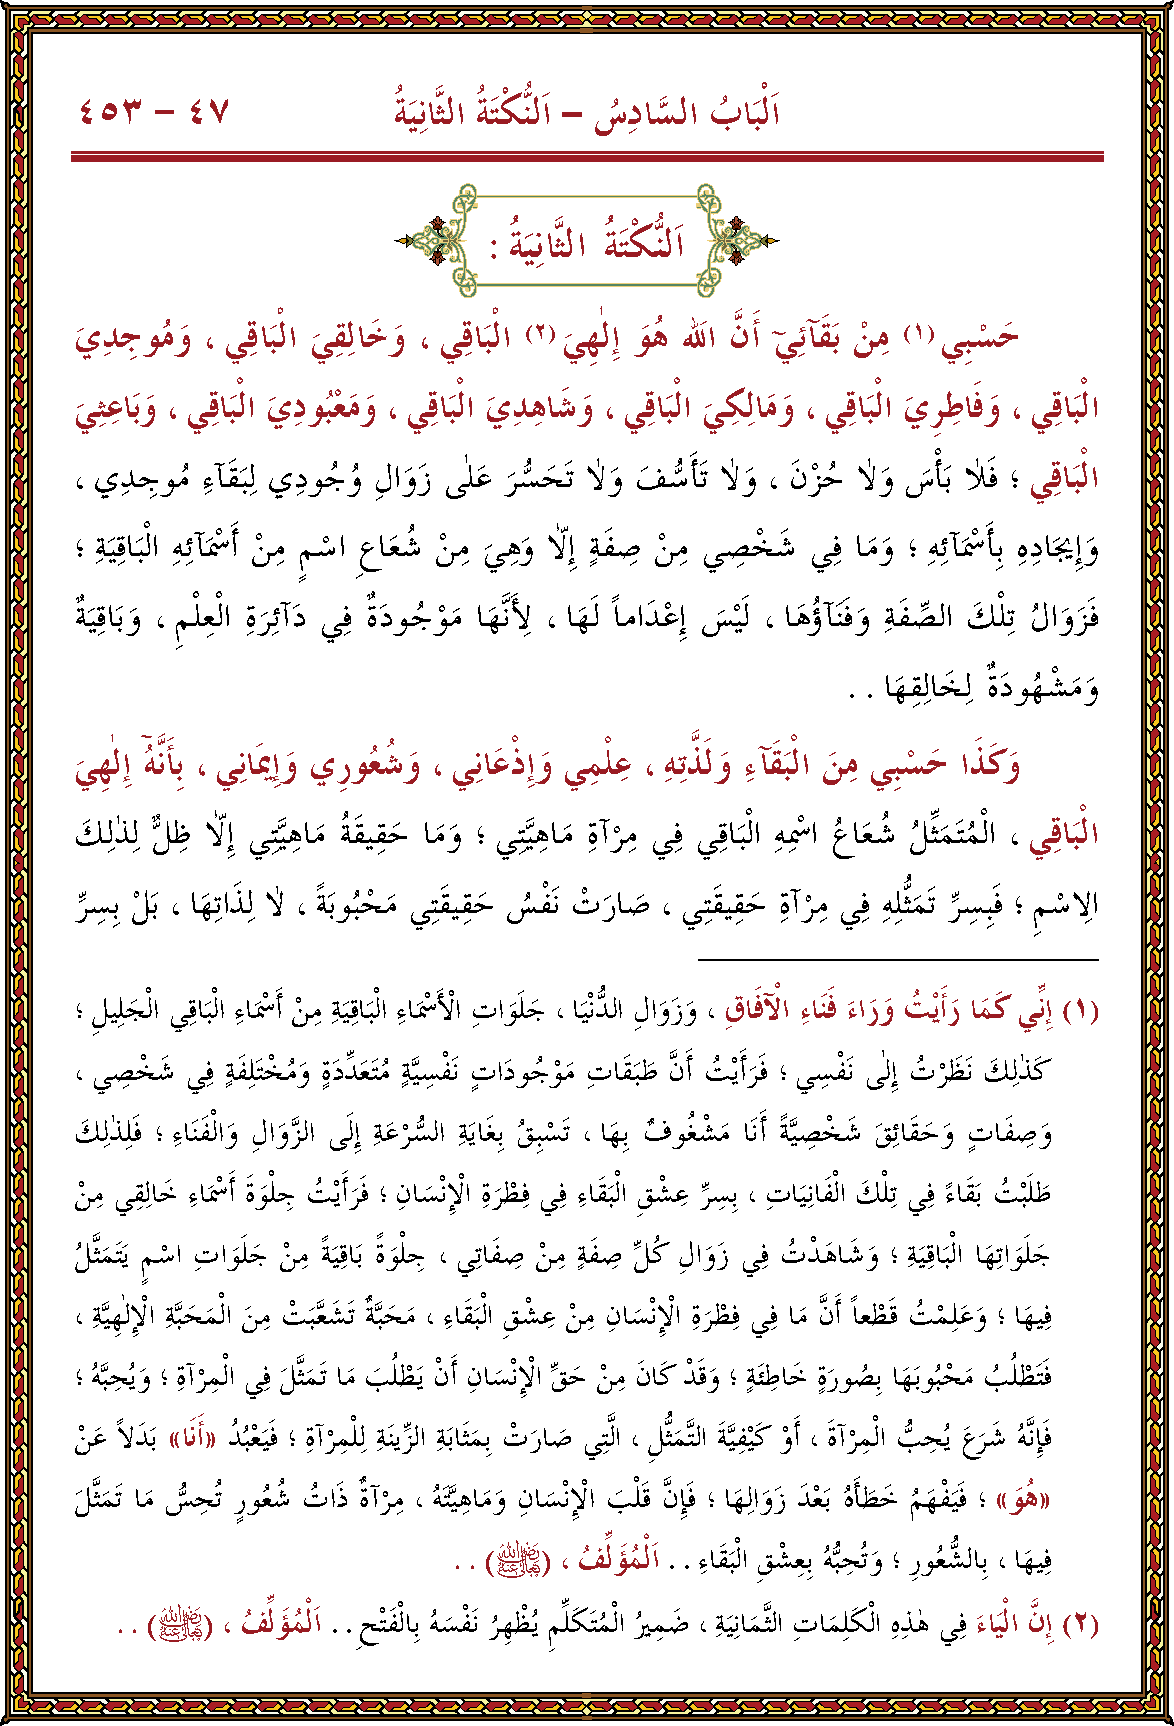 اَلْبَابُ السَّادِسُ – اَلنُّكْتَةُ الثَّانِيَةُ ٤٧ – ٤٥٣
اَلنُّكْتَةُ الثَّانِيَةُ :
حَسْبِي (١) مِنْ بَقَآئِيٓ أَنَّ اللهَ هُوَ إِلٰهِيَ (٢) الْبَاقِي ، وَخَالِقِيَ الْبَاقِي ، وَمُوجِدِيَ
الْبَاقِي ، وَفَاطِرِيَ الْبَاقِي ، وَمَالِكِيَ الْبَاقِي ، وَشَاهِدِيَ الْبَاقِي ، وَمَعْبُودِيَ الْبَاقِي ، وَبَاعِثِيَ
الْبَاقِي ؛ فَلَا بَأْسَ وَلَا حُزْنَ ، وَلَا تَأَسُّفَ وَلَا تَحَسُّرَ عَلٰى زَوَالِ وُجُودِي لِبَقَآءِ مُوجِدِي ،
وَإِيجَادِهِ بِأَسْمَآئِهِ ؛ وَمَا فِي شَخْصِي مِنْ صِفَةٍ إِلَّا وَهِيَ مِنْ شُعَاعِ اسْمٍ مِنْ أَسْمَآئِهِ الْبَاقِيَةِ ؛
فَزَوَالُ تِلْكَ الصِّفَةِ وَفَنَآؤُهَا ، لَيْسَ إِعْدَاماً لَهَا ، لِأَنَّهَا مَوْجُودَةٌ فِي دَآئِرَةِ الْعِلْمِ ، وَبَاقِيَةٌ
وَمَشْهُودَةٌ لِخَالِقِهَا . .
وَكَذَا حَسْبِي مِنَ الْبَقَآءِ وَلَذَّتِهِ ، عِلْمِي وَإِذْعَانِي ، وَشُعُورِي وَإِيمَانِي ، بِأَنَّهُٓ إِلٰهِيَ
الْبَاقِي ، الْمُتَمَثِّلُ شُعَاعُ اسْمِهِ الْبَاقِي فِي مِرْآةِ مَاهِيَّتِي ؛ وَمَا حَقِيقَةُ مَاهِيَّتِي إِلَّا ظِلٌّ لِذٰلِكَ
الِاسْمِ ؛ فَبِسِرِّ تَمَثُّلِهِ فِي مِرْآةِ حَقِيقَتِي ، صَارَتْ نَفْسُ حَقِيقَتِي مَحْبُوبَةً ، لَا لِذَاتِهَا ، بَلْ بِسِرِّ
(١) إِنِّي كَمَا رَأَيْتُ وَرَاءَ فَنَاءِ الْآفَاقِ ، وَزَوَالِ الدُّنْيَا ، جَلَوَاتِ الْأَسْمَاءِ الْبَاقِيَةِ مِنْ أَسْمَاءِ الْبَاقِي الْجَلِيلِ ؛
كَذٰلِكَ نَظَرْتُ إِلٰى نَفْسِي ؛ فَرَأَيْتُ أَنَّ طَبَقَاتِ مَوْجُودَاتٍ نَفْسِيَّةٍ مُتَعَدِّدَةٍ وَمُخْتَلِفَةٍ فِي شَخْصِي ،
وَصِفَاتٍ وَحَقَائِقَ شَخْصِيَّةً أَنَا مَشْغُوفٌ بِهَا ، تَسْبِقُ بِغَايَةِ السُّرْعَةِ إِلَى الزَّوَالِ وَالْفَنَاءِ ؛ فَلِذٰلِكَ
طَلَبْتُ بَقَاءً فِي تِلْكَ الْفَانِيَاتِ ، بِسِرِّ عِشْقِ الْبَقَاءِ فِي فِطْرَةِ الْإِنْسَانِ ؛ فَرَأَيْتُ جِلْوَةَ أَسْمَاءِ خَالِقِي مِنْ
جَلَوَاتِهَا الْبَاقِيَةِ ؛ وَشَاهَدْتُ فِي زَوَالِ كُلِّ صِفَةٍ مِنْ صِفَاتِي ، جِلْوَةً بَاقِيَةً مِنْ جَلَوَاتِ اسْمٍ يَتَمَثَّلُ
فِيهَا ؛ وَعَلِمْتُ قَطْعاً أَنَّ مَا فِي فِطْرَةِ الْإِنْسَانِ مِنْ عِشْقِ الْبَقَاءِ ، مَحَبَّةٌ تَشَعَّبَتْ مِنَ الْمَحَبَّةِ الْإِلٰهِيَّةِ ،
فَتَطْلُبُ مَحْبُوبَهَا بِصُورَةٍ خَاطِئَةٍ ؛ وَقَدْ كَانَ مِنْ حَقِّ الْإِنْسَانِ أَنْ يَطْلُبَ مَا تَمَثَّلَ فِي الْمِرْآةِ ؛ وَيُحِبَّهُ ؛
فَإِنَّهُ شَرَعَ يُحِبُّ الْمِرْآةَ ، أَوْ كَيْفِيَّةَ التَّمَثُّلِ ، الَّتِي صَارَتْ بِمَثَابَةِ الزِّينَةِ لِلْمِرْآةِ ؛ فَيَعْبُدُ «أَنَا» بَدَلاً عَنْ
«هُوَ» ؛ فَيَفْهَمُ خَطَأَهُ بَعْدَ زَوَالِهَا ؛ فَإِنَّ قَلْبَ الْإِنْسَانِ وَمَاهِيَّتَهُ ، مِرْآةٌ ذَاتُ شُعُورٍ تُحِسُّ مَا تَمَثَّلَ
فِيهَا ، بِالشُّعُورِ ؛ وَتُحِبُّهُ بِعِشْقِ الْبَقَاءِ . . اَلْمُؤَلِّفُ ، (رضي الله تعالى عنه) . .
(٢) إِنَّ الْيَاءَ فِي هٰذِهِ الْكَلِمَاتِ الثَّمَانِيَةِ ، ضَمِيرُ الْمُتَكَلِّمِ يُظْهِرُ نَفْسَهُ بِالْفَتْحِ . . اَلْمُؤَلِّفُ ، (رضي الله تعالى عنه) . .